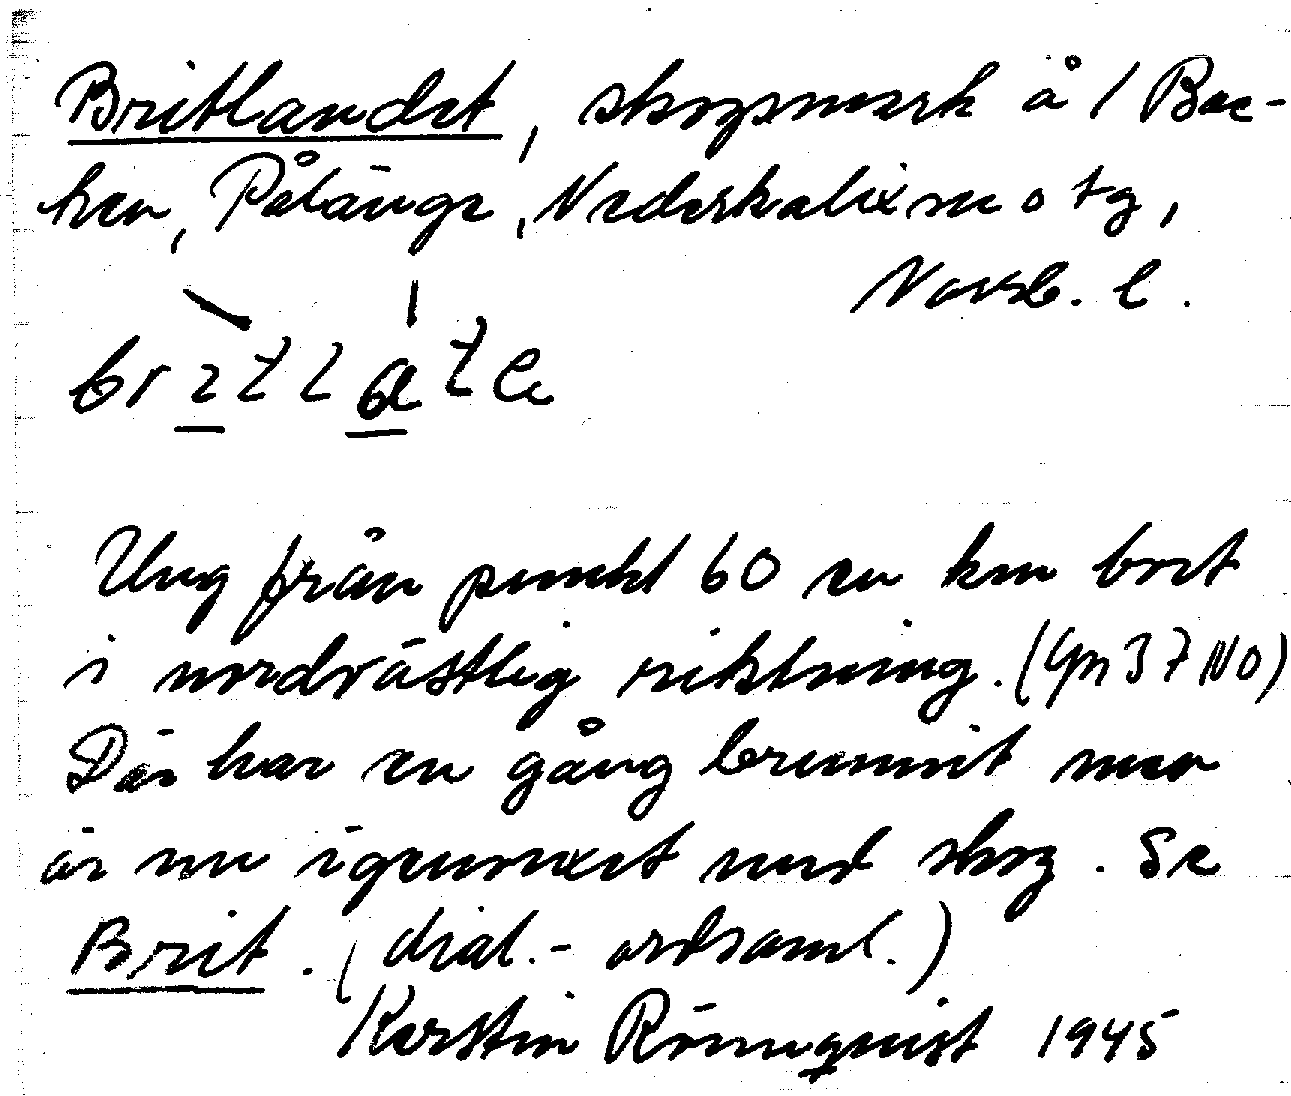 Britlandet, skogsmark å 1 Bac-
ken, Pålänge, Nederkalix sn o tg,
Norrb. l.
Ung från punkt 60 en km bort
i nordvästlig riktning. (Gm 37 NO)
Där har en gång brunnit men
är nu igenvuxet med skog. Se
Brit. (dial.-ordsaml.)
Kerstin Rönnquist 1945